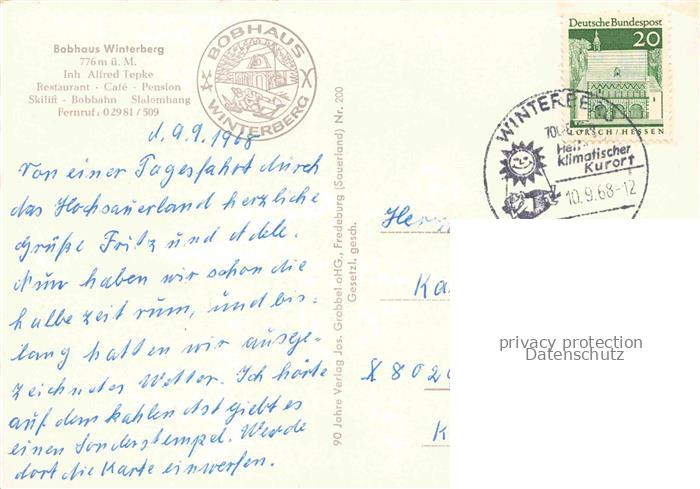 Bobhaus Winterberg
776 m ü. M.
Inh Alfred Tepke
Restaurant · Café · Pension
Skilift · Bobbahn Slalomhang
Fernruf: 0 29 81 / 509
BOBHAUS
WINTERBERG
Deutsche Bundespost
20
LORSCH / HESSEN
WINTERBERG
Heil-
klimatischer
Kurort
10.9.68-12
d. 9.9.1968
Von einer Tagesfahrt durch
das Hochsauerland herzliche
Grüße Fritz und Adele.
Nun haben wir schon die
halbe Zeit rum, und bis-
lang hatten wir ausge-
zeichnetes Wetter. Ich hörte
auf dem kahlen Ast giebt es
einen Sonderstempel. Werde
dort die Karte einwerfen.
90 Jahre Verlag Jos. Grobbel oHG., Fredeburg (Sauerland) Nr. 200
Gesetzl. gesch.
Herrn
Ka
X 802
K
privacy protection
Datenschutz